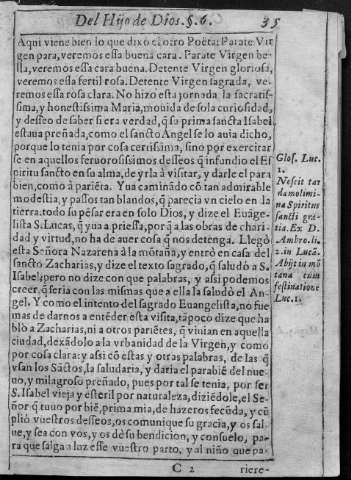 Del Hijo de Dios. §. 6. 35
Aqui viene bien lo que dixo el otro Poëta: Parate Vir
gen para, veremos essa buena cara. Parate Virgen be-
lla, veremos essa cara buena. Detente Virgen gloriosa,
veremos essa fertil rosa. Detente Virgen sagrada, ve-
remos essa rosa clara. No hizo esta jornada la sacratis-
sima, y honestissima Maria, mouida de sola curiosidad,
y desseo de saber si era verdad, q̃ su prima sancta Isabel
estaua preñada, como el sancto Angel se lo auia dicho,
porque lo tenia por cosa certissima, sino por exercitar
se en aquellos feruorosissimos desseos q̃ infundio el Es
piritu sancto en su alma, de yrla à visitar, y darle el para
bien, como à pariẽta. Yua caminãdo cõ tan admirable
modestia, y passos tan blandos, q̃ parecia vn cielo en la
tierra. todo su pẽsar era en solo Dios, y dize el Euãge-
lista S. Lucas, q̃ yua a priessa, porq̃ a las obras de chari-
dad y virtud, no ha de auer cosa q̃ nos detenga. Llegò
esta Señora Nazarena à la mõtaña, y entrò en casa del
sancto Zacharias, y dize el texto sagrado, q̃ saludò a S.
Isabel; pero no dize con que palabras, y assi podemos
creer, q̃ seria con las mismas que a ella la saludò el An-
gel. Y como el intento del sagrado Euangelista, no fue
mas de darnos a entẽder esta visita, tãpoco dize que ha
blò a Zacharias, ni a otros pariẽtes, q̃ viuian en aquella
ciudad, dexãdolo a la vrbanidad de la Virgen, y como
por cosa clara: y assi cõ estas y otras palabras, de las q̃
vsan los Sãctos, la saludaria, y daria el parabiẽ del nue-
uo, y milagroso preñado, pues por tal se tenia, por ser
S. Isabel vieja y esteril por naturaleza, diziẽdole, el Se-
ñor q̃ tuuo por biẽ, prima mia, de hazeros fecũda, y cũ
pliò vuestros desseos, os comunique su gracia, y os sal-
ue, y sea con vos, y os dè su bendicion, y consuelo, pa-
ra que salga a luz esse vuestro parto, y al niño que pa-
C 2 riere-
Glos. Luc.
1.
Nescit tar
da molimi-
na Spiritus
sancti gra-
tia. Ex D.
Ambro. li.
2. in Lucã.
Abijt in mõ
tana cum
festinatione
Luc. 1.